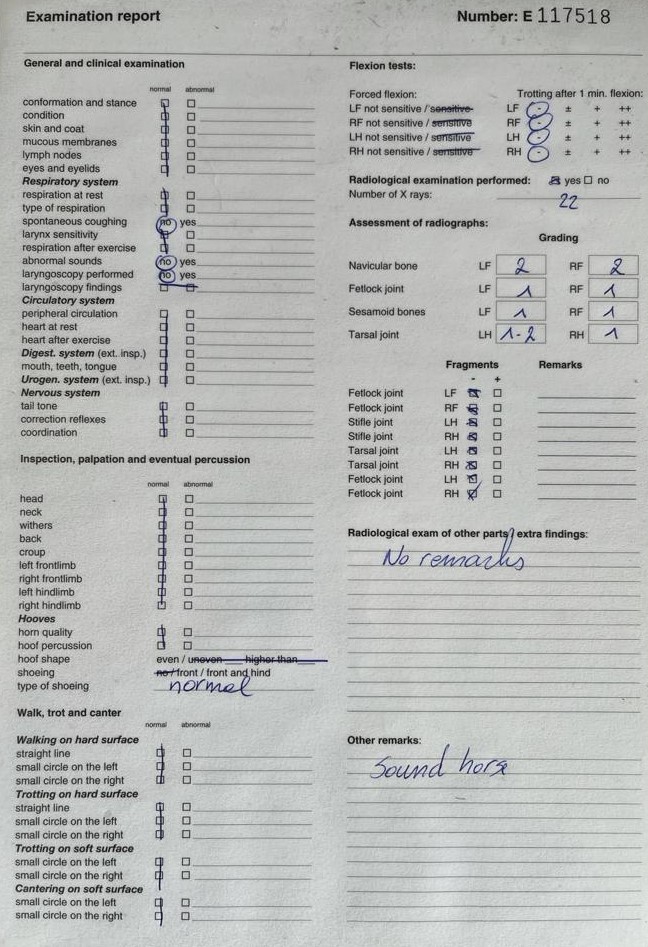 Examination report
Number: E 117518
General and clinical examination
normal abnormal
conformation and stance
condition
skin and coat
mucous membranes
lymph nodes
eyes and eyelids
Respiratory system
respiration at rest
type of respiration
spontaneous coughing no yes
larynx sensitivity
respiration after exercise
abnormal sounds no yes
laryngoscopy performed no yes
laryngoscopy findings
Circulatory system
peripheral circulation
heart at rest
heart after exercise
Digest. system (ext. insp.)
mouth, teeth, tongue
Urogen. system (ext. insp.)
Nervous system
tail tone
correction reflexes
coordination
Inspection, palpation and eventual percussion
normal abnormal
head
neck
withers
back
croup
left frontlimb
right frontlimb
left hindlimb
right hindlimb
Hooves
horn quality
hoof percussion
hoof shape even / uneven ___ higher than ___
shoeing no / front / front and hind
type of shoeing normal
Walk, trot and canter
normal abnormal
Walking on hard surface
straight line
small circle on the left
small circle on the right
Trotting on hard surface
straight line
small circle on the left
small circle on the right
Trotting on soft surface
small circle on the left
small circle on the right
Cantering on soft surface
small circle on the left
small circle on the right
Flexion tests:
Forced flexion: Trotting after 1 min. flexion:
LF not sensitive / sensitive LF - ± + ++
RF not sensitive / sensitive RF - ± + ++
LH not sensitive / sensitive LH - ± + ++
RH not sensitive / sensitive RH - ± + ++
Radiological examination performed: yes no
Number of X rays: 22
Assessment of radiographs:
Grading
Navicular bone LF 2 RF 2
Fetlock joint LF 1 RF 1
Sesamoid bones LF 1 RF 1
Tarsal joint LH 1-2 RH 1
Fragments Remarks
- +
Fetlock joint LF
Fetlock joint RF
Stifle joint LH
Stifle joint RH
Tarsal joint LH
Tarsal joint RH
Fetlock joint LH
Fetlock joint RH
Radiological exam of other parts / extra findings:
No remarks
Other remarks:
Sound horse